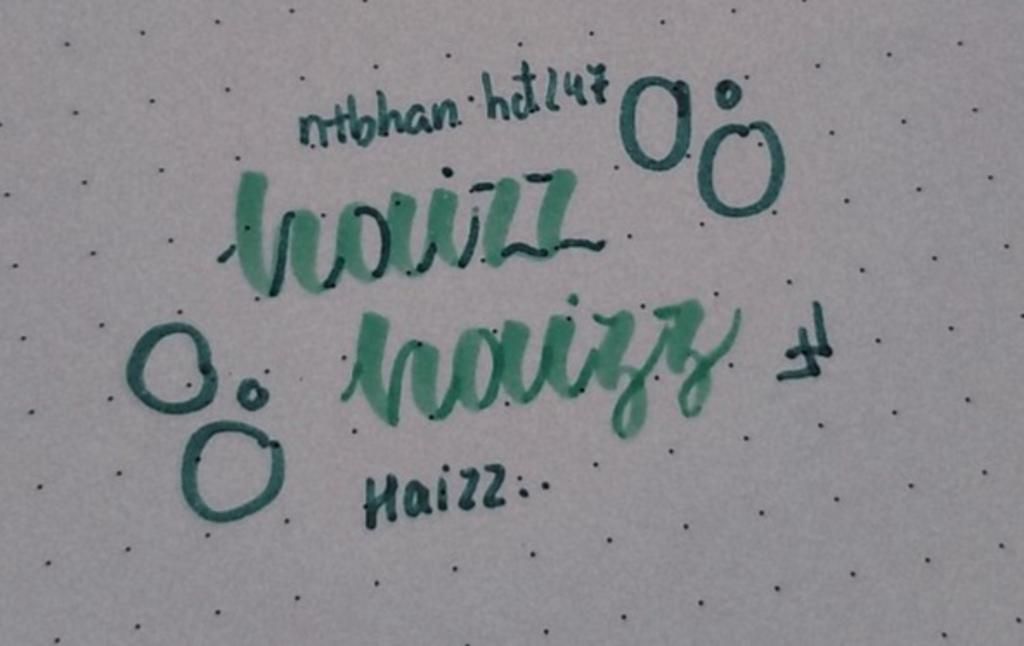 ntbhan.hdt247
haizz
haizz
Haizz..